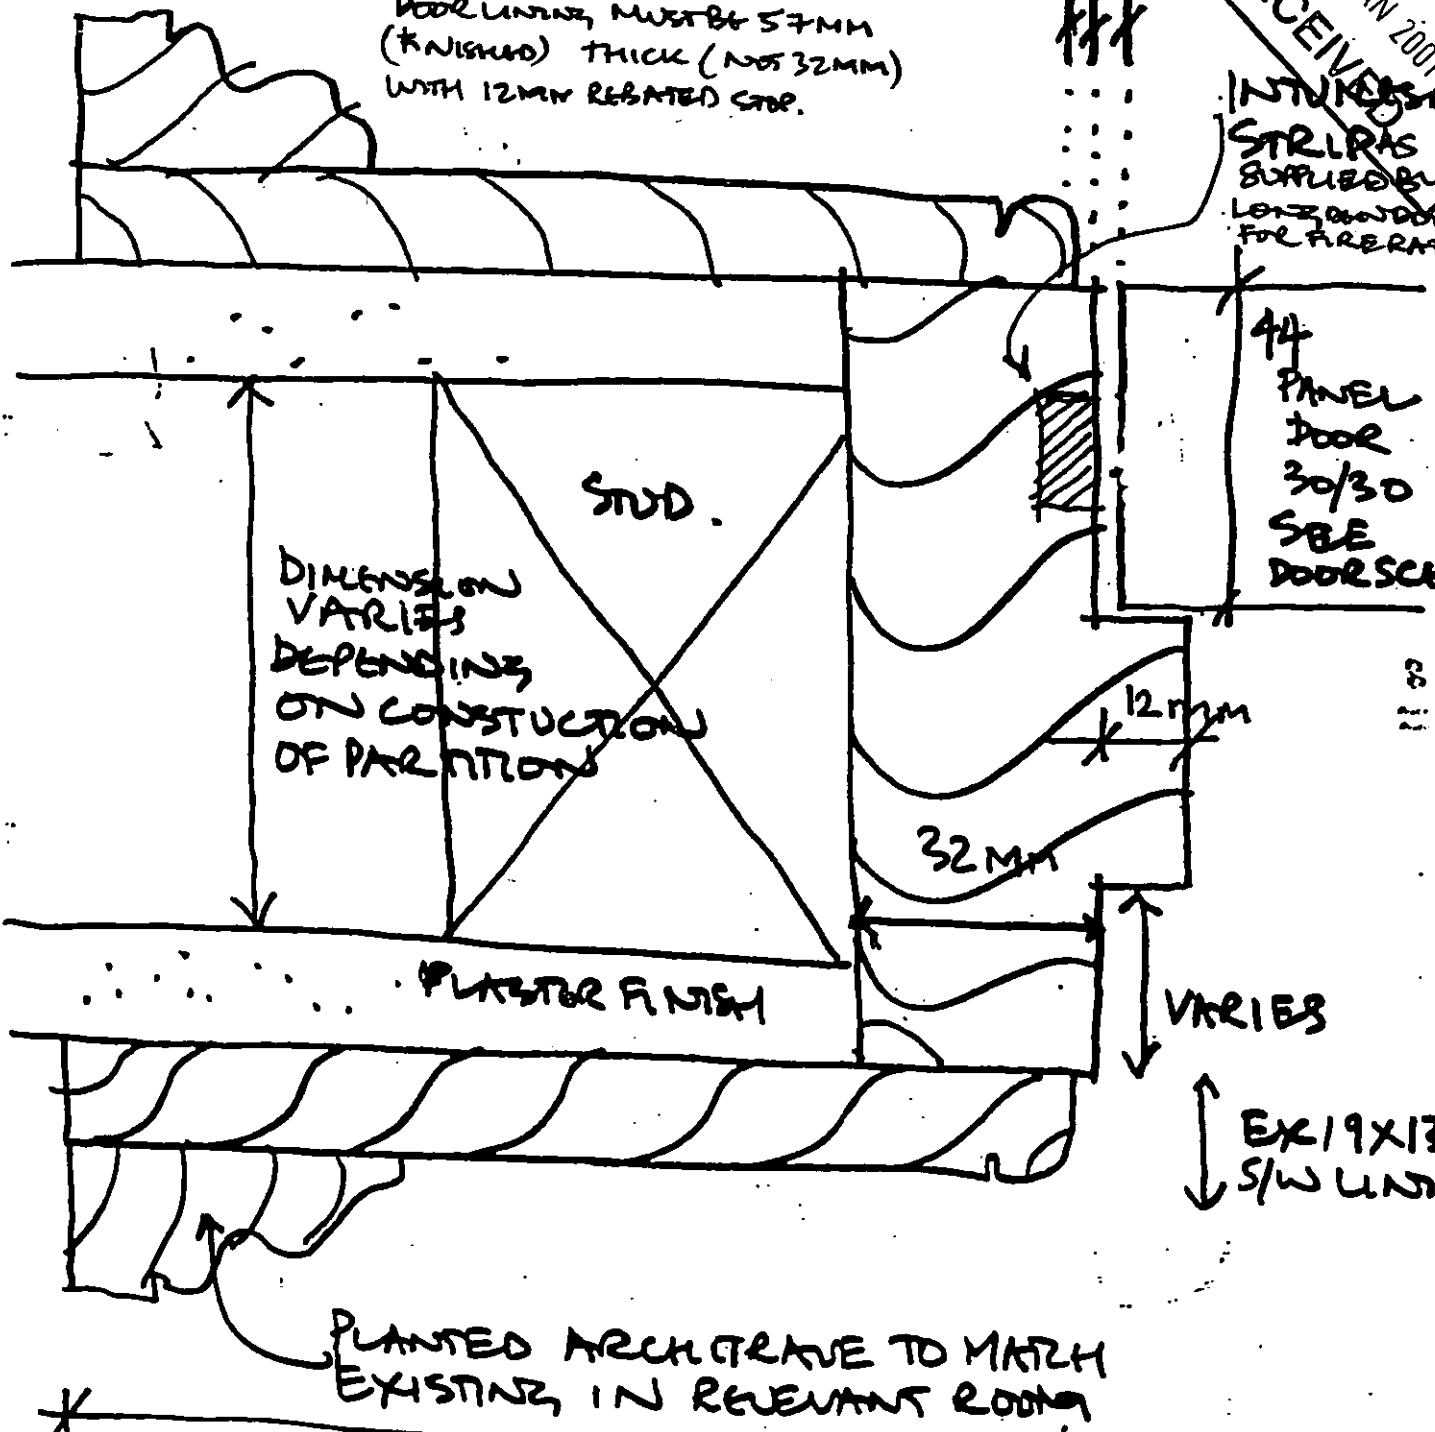 DOOR LINING MUST BE 57MM
(FINISHED) THICK (NOT 32MM)
WITH 12MM REBATED STOP.
RECEIVED
JAN 2001
STRIP AS
SUPPLIED BY
FOR FIRE
44
PANEL
DOOR
30/30
SEE
DOOR SC
STUD.
DIMENSION
VARIES
DEPENDING
ON CONSTUCTION
OF PARTITION
12mm
32MM
PLASTER FINISH
VARIES
EX 19X13
S/W LINI
PLANTED ARCHITRAVE TO MATCH
EXISTING IN RELEVANT ROOM